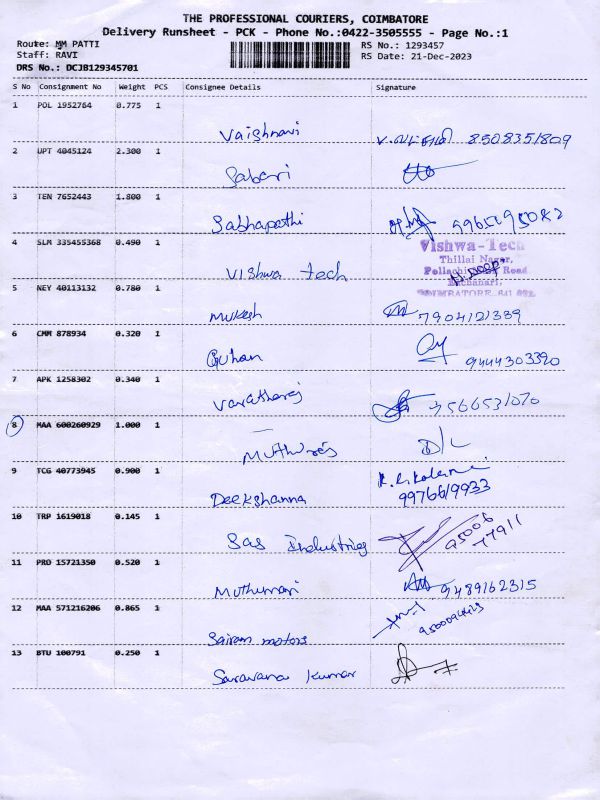 THE PROFESSIONAL COURIERS, COIMBATORE
Delivery Runsheet - PCK - Phone No.:0422-3505555 - Page No.:1
Route: MM PATTI
Staff: RAVI
DRS No.: DCJB129345701
RS No.: 1293457
RS Date: 21-Dec-2023
S No Consignment No Weight PCS Consignee Details Signature
1 POL 1952764 0.775 1
Vaishnavi 8508351809
2 UPT 4045124 2.300 1
Sabari
3 TEN 7652443 1.800 1
Sabhapathi
4 SLM 335455368 0.490 1
Vishwa tech
Vishwa-Tech
Thillai Nagar,
Pollachi Road
COIMBATORE
5 NEY 40113132 0.780 1
Mukesh 7904121339
6 CMM 878934 0.320 1
Guhan 9444303390
7 APK 1258302 0.340 1
Varatharaj
8 MAA 600260929 1.000 1
Muthuraj D/L
9 TCG 40773945 0.900 1
Deekshanna 9976619933
10 TRP 1619018 0.145 1
Sas Industries 95006
77911
11 PRO 15721350 0.520 1
Muthumari 9489162315
12 MAA 571216206 0.865 1
Sairam motors
13 BTU 100791 0.250 1
Saravana Kumar